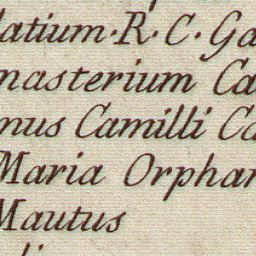 latium. R. C. Ga
nasterium Ca
nus Camilli Ca
Maria Orphan
Mautus